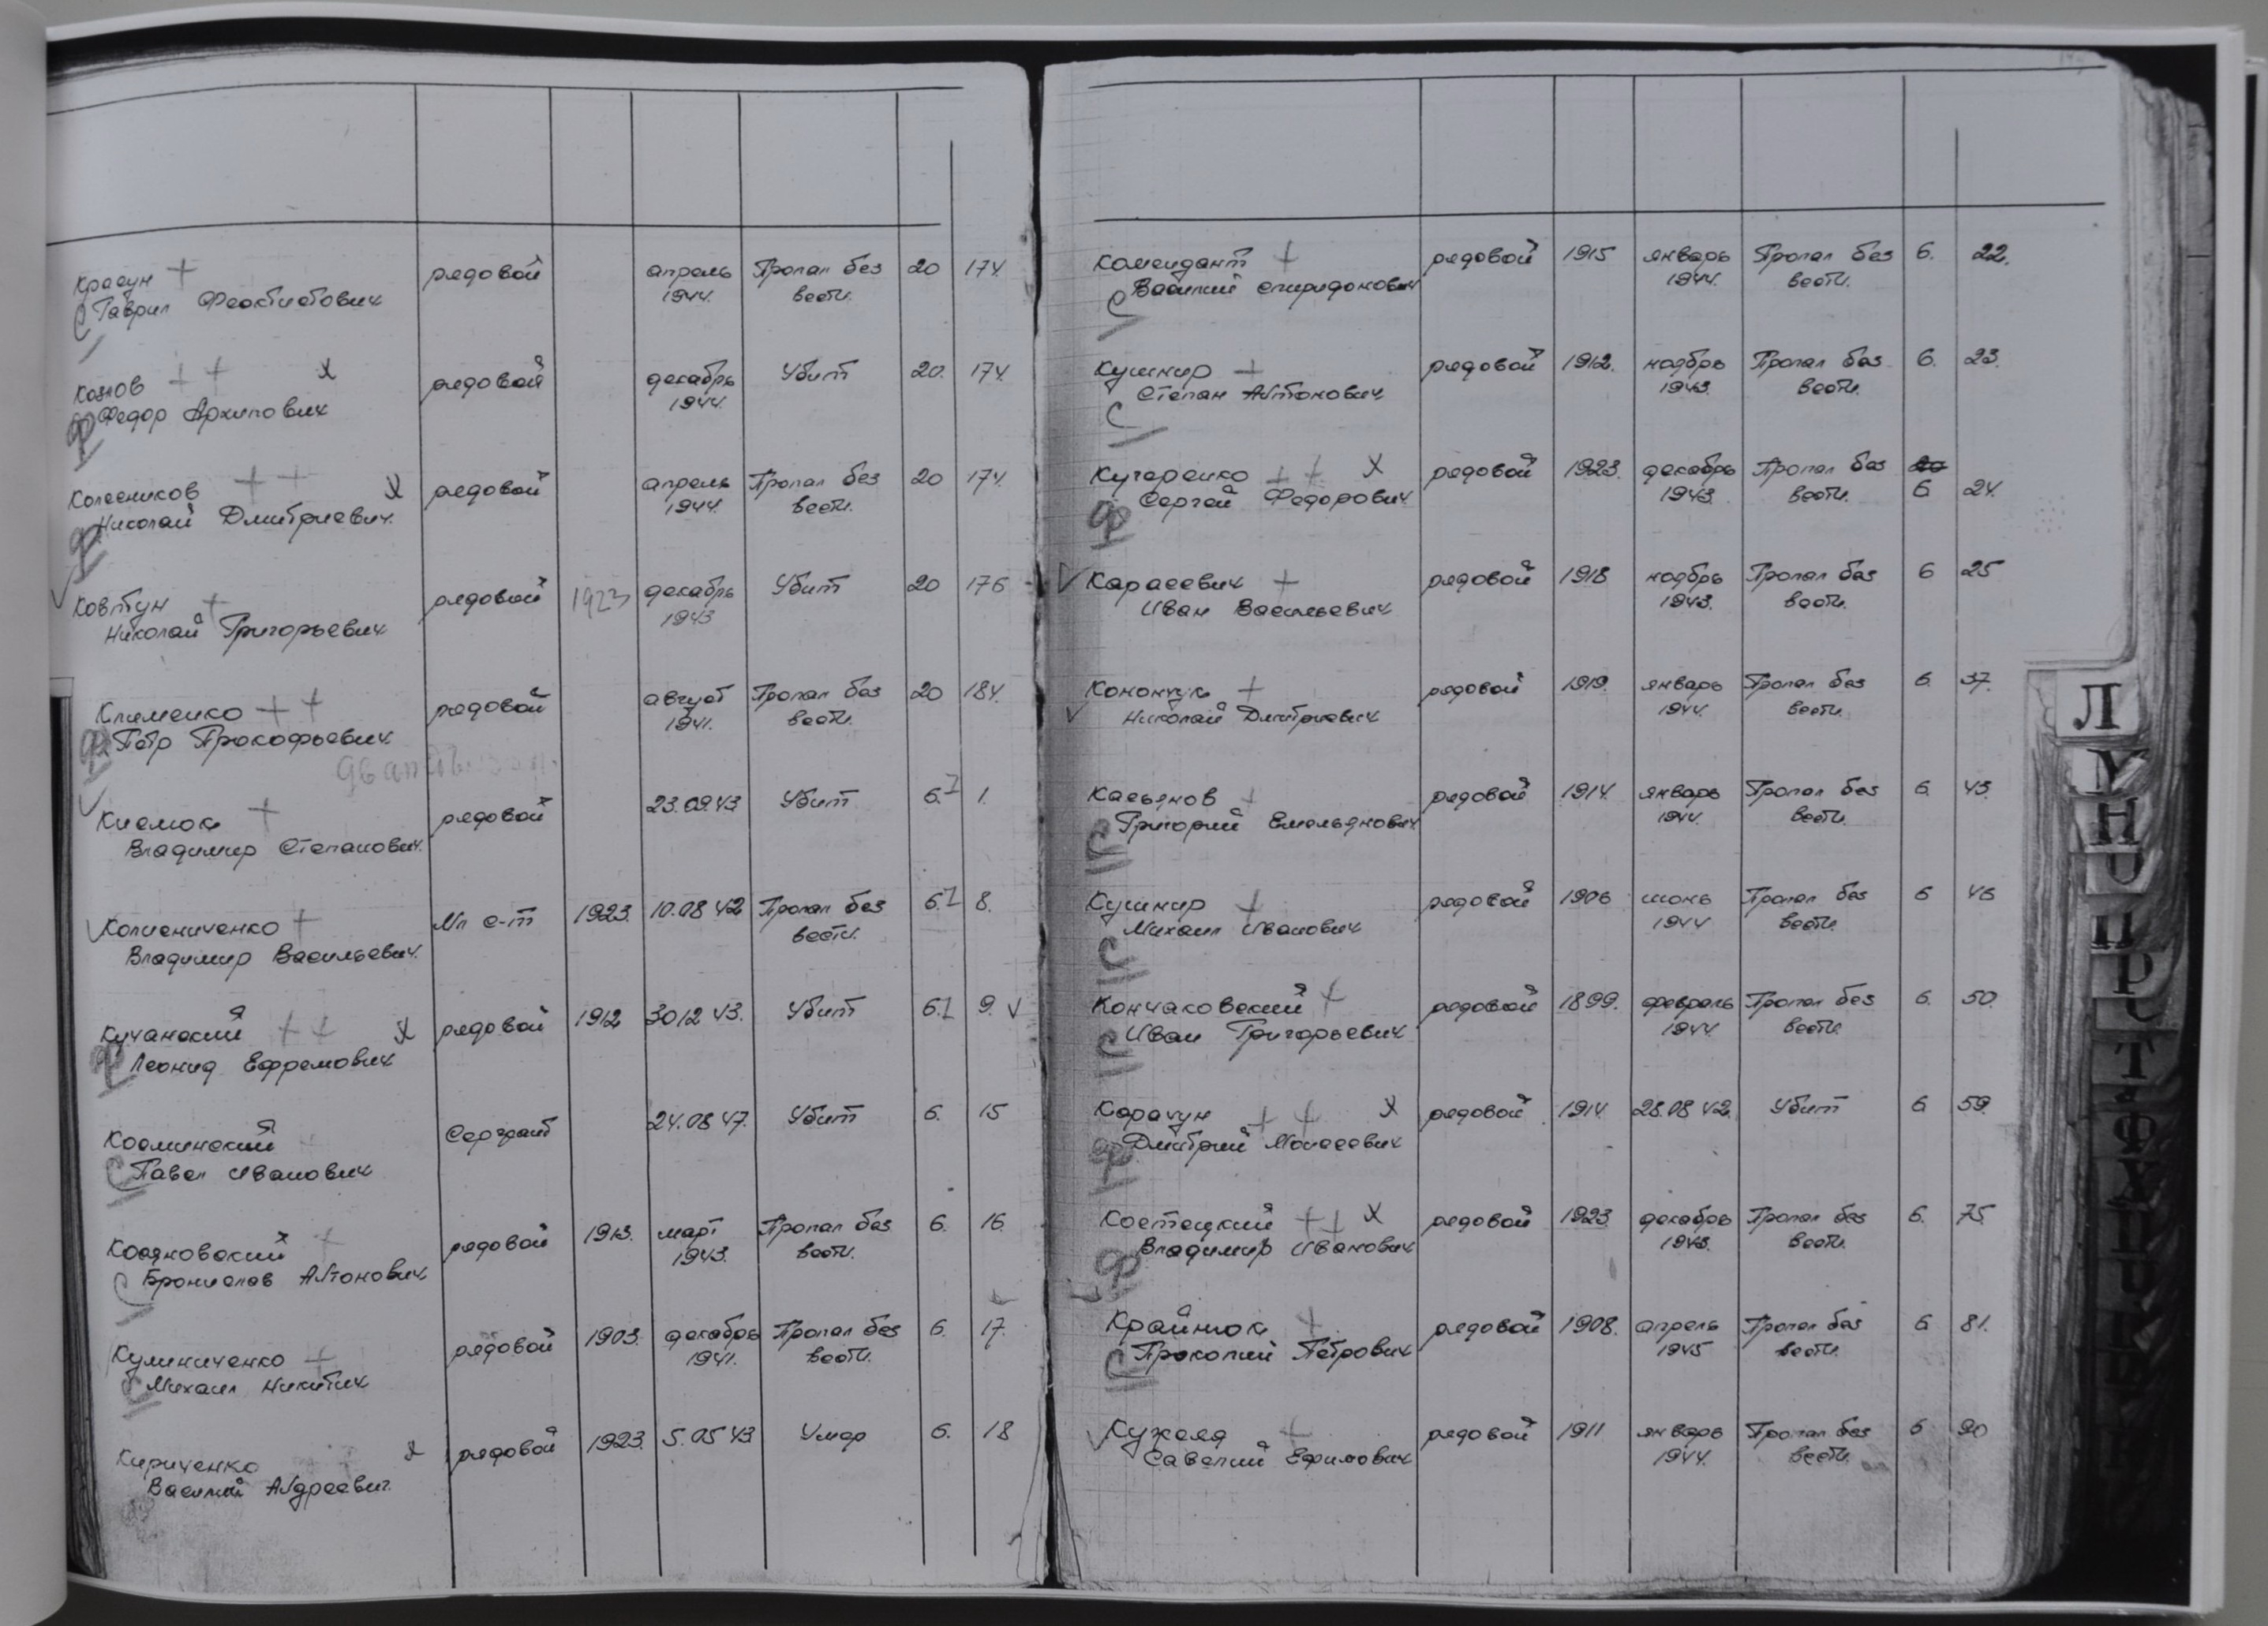 Красун + рядовой апрель Пропал без 20 174.
С Гаврил Феоктистович 1944. вести.
Козлов + + х рядовой декабрь Убит 20. 174
Ф Федор Архипович 1944.
Колесников + + х рядовой апрель Пропал без 20 174.
Ф Николай Дмитриевич. 1944. вести.
Ковтун + рядовой 1923 декабрь Убит 20 176
Николай Григорьевич 1943
Клименко + + рядовой август Пропал без 20 184.
Ф Петр Прокофьевич 1941. вести.
Кислюк + рядовой 23.09.43 Убит 6. 1.
Владимир Степанович.
Колисниченко + Мл с-т 1923. 10.08 42 Пропал без 6. 8.
Владимир Васильевич. вести.
Кучанский + + х рядовой 1912 30 12 43. Убит 6. 9. V
Ф Леонид Ефремович
Косминский Сержант 24.08 47. Убит 6. 15
С Павел Иванович
Косяновский + рядовой 1913. март Пропал без 6. 16.
С Бронислав Антонович 1943. вести.
Кулиниченко + рядовой 1903. декабрь Пропал без 6. 17.
С Михаил Никитич 1941. вести.
Кириченко х рядовой 1923. 5.05 43 Умер 6. 18
Василий Андреевич.
Комендант + рядовой 1915 январь Пропал без 6. 22.
С Василий Спиридонович 1944. вести.
Кушнир + рядовой 1912. ноябрь Пропал без 6. 23.
Степан Антонович 1943. вести.
С
Кучеренко + + х рядовой 1923. декабрь Пропал без 20
Ф Сергей Федорович 1943. вести. 6 24.
V Карасевич + рядовой 1918 ноябрь Пропал без 6 25
Иван Васильевич 1943. вести.
Конончук + рядовой 1919. январь Пропал без 6. 37.
V Николай Дмитриевич 1944. вести.
Касьянов + рядовой 1914. январь Пропал без 6. 43.
С Григорий Емельянович 1944. вести.
Кушнир + рядовой 1906 июнь Пропал без 6 46
С Михаил Иванович 1944 вести.
Кончаковский + рядовой 1899. февраль Пропал без 6. 50.
С Иван Григорьевич 1944. вести.
Карачун + + х рядовой 1914. 28.08 42. Убит 6 59.
Ф Дмитрий Моисеевич
Костецкий + + х рядовой 1923. декабрь Пропал без 6. 75.
Ф Владимир Иванович 1943. вести.
Крайнюк + рядовой 1908. апрель Пропал без 6 81.
С Прокопий Петрович 1945 вести.
V Кужеля + рядовой 1911 январь Пропал без 6 90
Савелий Ефимович 1944. вести.
Л
У
Н
П
Р
С
Т
Ф
Х